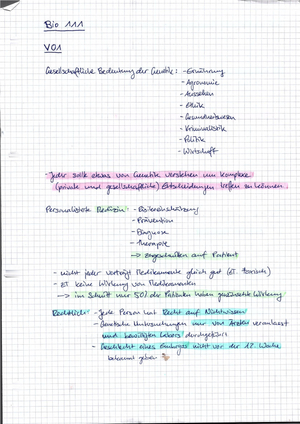 Bio 111
V01
Gesellschaftliche Bedeutung der Genetik: - Ernährung
- Agronomie
- Aussehen
- Ethik
- Gesundheitswesen
- Kriminalistik
- Politik
- Wirtschaft
- Jeder sollte etwas von Genetik verstehen um komplexe
(private und gesellschaftliche) Entscheidungen treffen zu können
Personalisierte Medizin - Risikoeinschätzung
- Prävention
- Diagnose
- Therapie
→ zugeschnitten auf Patient
- nicht jeder verträgt Medikamente gleich gut (zT. toxisch)
- zT keine Wirkung von Medikamenten
→ im Schnitt nur 50% der Patienten haben gewünschte Wirkung
Rechtliches - Jede Person hat Recht auf Nichtwissen
- Genetische Untersuchungen nur von Ärzten veranlasst
und bewilligten Labors durchgeführt
- Geschlecht eines Embryos nicht vor der 12. Woche
bekannt geben